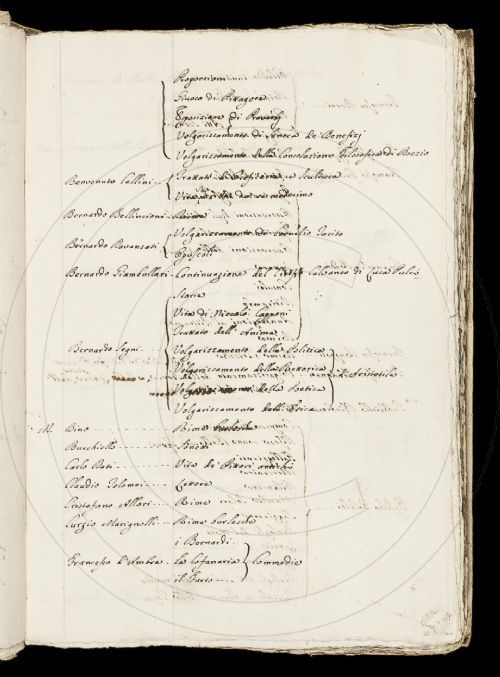 Proporzioni
Giuoco di Pittagora
Esposizione di Proverbj
Volgarizzamento di Seneca de' Benefizj
Volgarizzamento della Consolazione Filosofica di Boezio
Benvenuto Cellini - - Trattati d' Oreficeria e Scultura
Vita scritta da se medesimo
Bernardo Bellincioni - Rime
Bernardo Davanzati - Volgarizzamento di Cornelio Tacito
Opuscoli
Bernardo Giambullari - Continuazione del Ciriffo Calvaneo di Luca Pulci
Storie
Vita di Niccolò Capponi
Trattato dell' Anima
Bernardo Segni - - Volgarizzamento della Politica
Volgarizzamento della Rettorica
Volgarizzamento della Poetica d' Aristotile
Volgarizzamento dell' Etica
M. Bino - - - - Rime burlesche
Burchiello - - - - Sonetti
Carlo Dati - - - - Vite de' Pittori antichi
Claudio Tolomei - - - Lettere
Cristofano Allori - - Rime
Curzio Marignolli - - Rime burlesche
i Bernardi - -
Francesco d' Ambra - - la Cofanaria Commedie
il Furto - - -